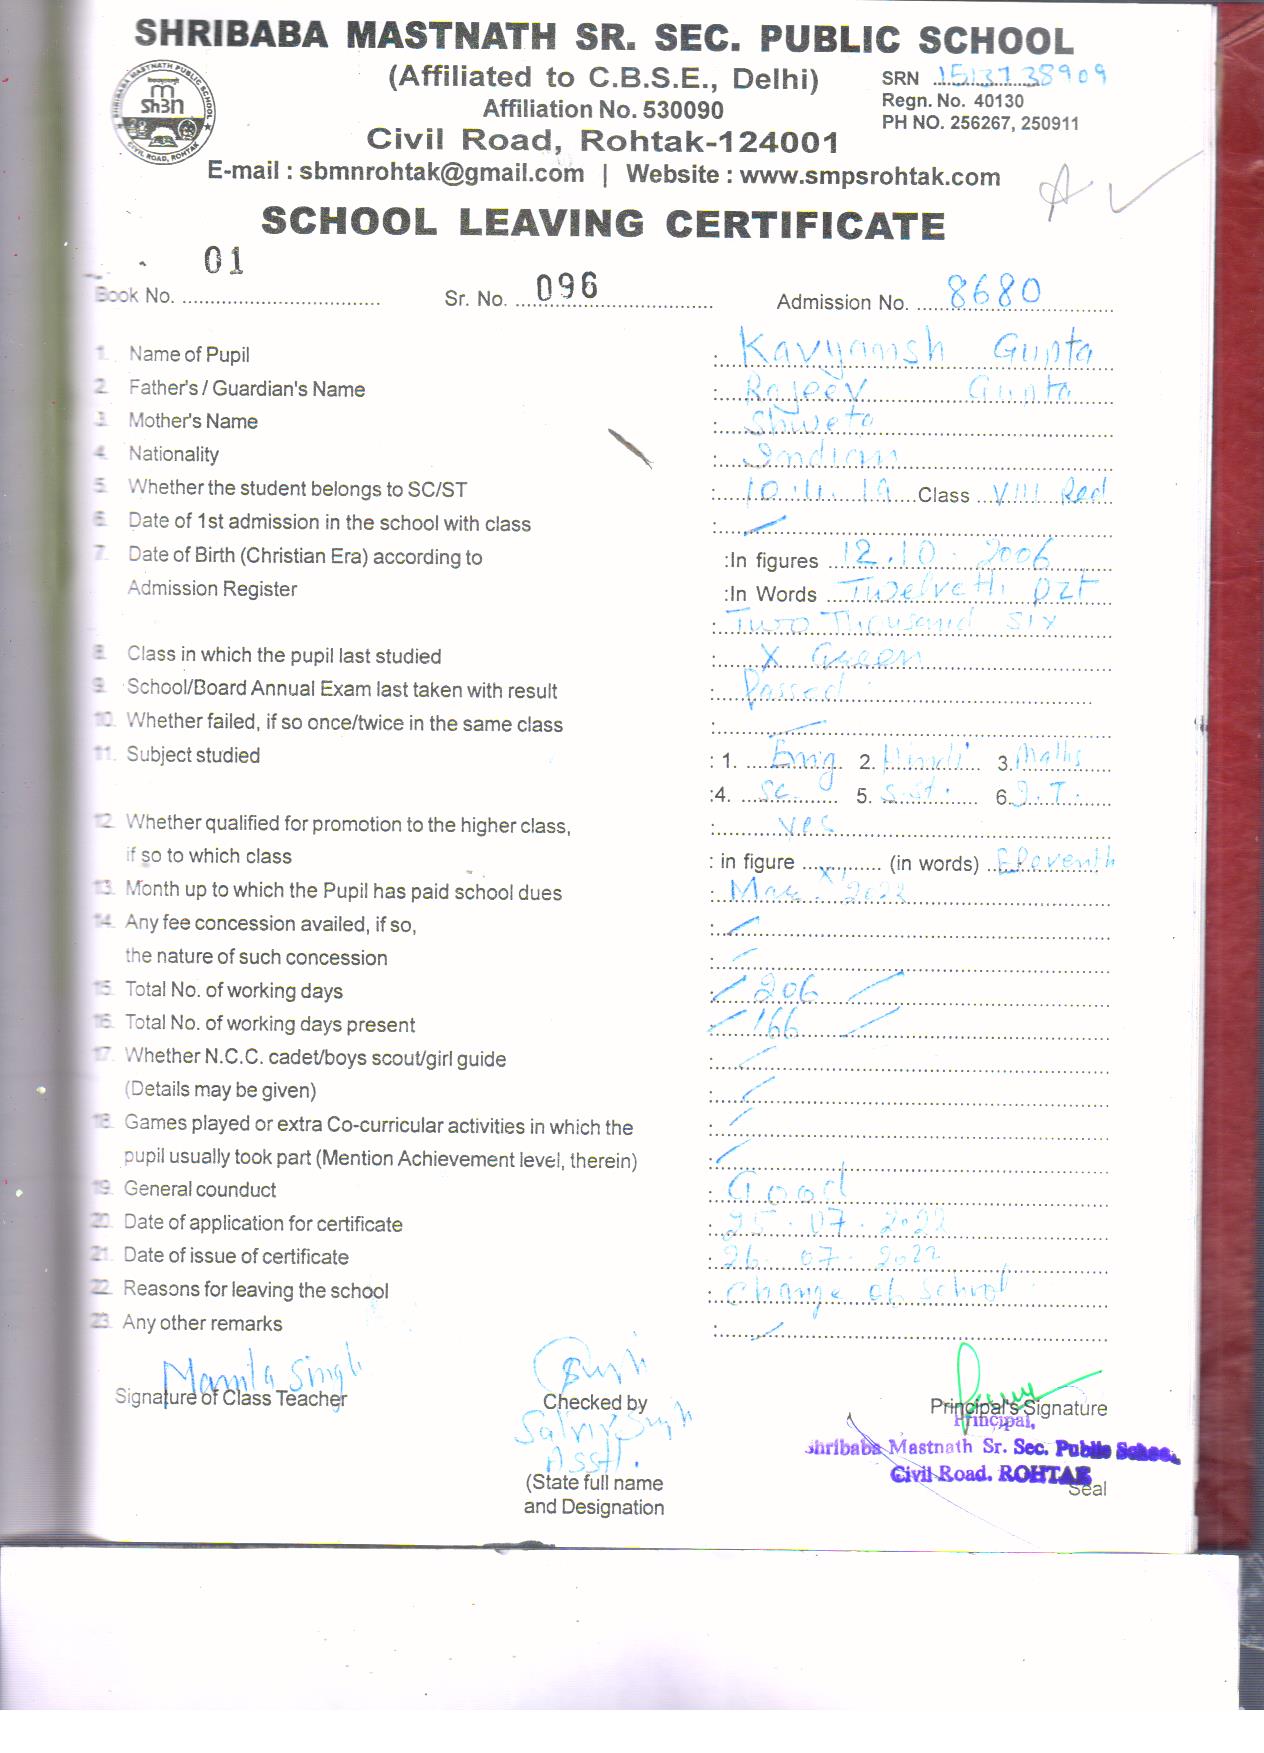 SHRIBABA MASTNATH SR. SEC. PUBLIC SCHOOL
(Affiliated to C.B.S.E., Delhi)
SRN 1513738909
Affiliation No. 530090
Regn. No. 40130
Civil Road, Rohtak-124001
PH NO. 256267, 250911
E-mail : sbmnrohtak@gmail.com | Website : www.smpsrohtak.com
SHRIBABA MASTNATH PUBLIC SCHOOL
CIVIL ROAD, ROHTAK
SCHOOL LEAVING CERTIFICATE
Book No. 01 Sr. No. 096 Admission No. 8680
1. Name of Pupil : Kavyansh Gupta
2. Father's / Guardian's Name : Rajeev Gupta
3. Mother's Name : Shweta
4. Nationality : Indian
5. Whether the student belongs to SC/ST : 10.4.19 Class VIII Red
6. Date of 1st admission in the school with class :
7. Date of Birth (Christian Era) according to :In figures 12.10.2006
Admission Register :In Words Twelveth Oct
: Two Thousand Six
8. Class in which the pupil last studied : X Green
9. School/Board Annual Exam last taken with result : Passed
10. Whether failed, if so once/twice in the same class :
11. Subject studied : 1. Eng 2. Hindi 3. Maths
:4. Sc. 5. S.St. 6. I.T.
12. Whether qualified for promotion to the higher class, : yes
if so to which class : in figure XI (in words) Eleventh
13. Month up to which the Pupil has paid school dues : Mar. 2022
14. Any fee concession availed, if so, :
the nature of such concession :
15. Total No. of working days : 206
16. Total No. of working days present : 166
17. Whether N.C.C. cadet/boys scout/girl guide :
(Details may be given) :
18. Games played or extra Co-curricular activities in which the :
pupil usually took part (Mention Achievement level, therein) :
19. General counduct : Good
20. Date of application for certificate : 25.07.2022
21. Date of issue of certificate : 26.07.2022
22. Reasons for leaving the school : Change of School
23. Any other remarks :
Mamila Singh
Signature of Class Teacher Checked by Principal's Signature
Principal,
Shribaba Mastnath Sr. Sec. Public School
Asstt.
Civil Road. ROHTAK
(State full name Seal
and Designation